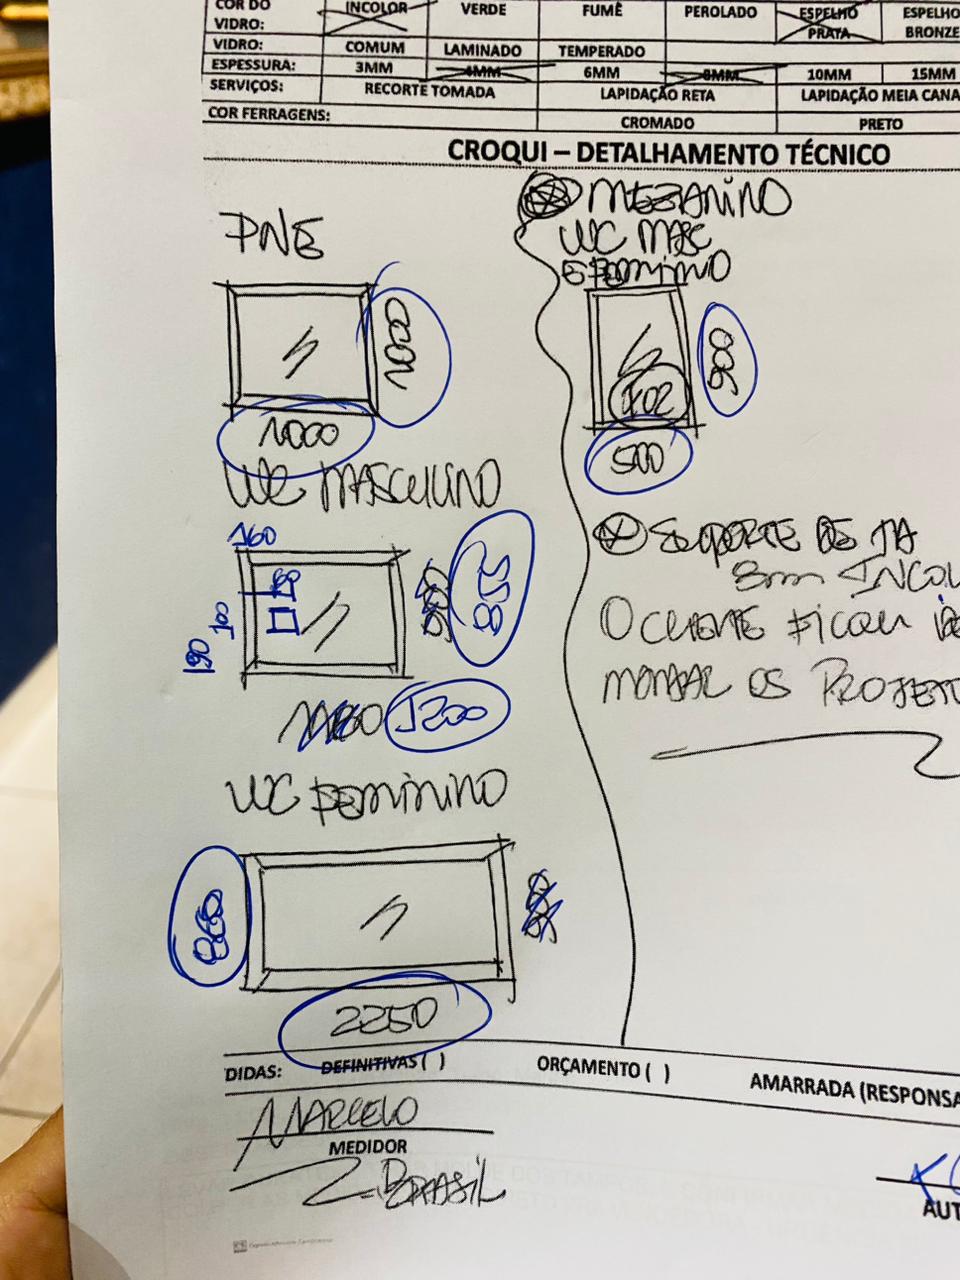 COR DO VIDRO: INCOLOR VERDE FUMÊ PEROLADO ESPELHO PRATA ESPELHO BRONZE
VIDRO: COMUM LAMINADO TEMPERADO
ESPESSURA: 3MM 4MM 6MM 8MM 10MM 15MM
SERVIÇOS: RECORTE TOMADA LAPIDAÇÃO RETA LAPIDAÇÃO MEIA CANA
COR FERRAGENS: CROMADO PRETO
CROQUI – DETALHAMENTO TÉCNICO
PNE
1000
1000
WC MASCULINO
160
100
190
1200
WC FEMININO
860
2250
MEZANINO
WC MASC
E FEMININO
900
702
500
SUPORTE
8mm INCOL
O CLIENTE FICOU
OS PROJETO
DIDAS: DEFINITIVAS ( ) ORÇAMENTO ( ) AMARRADA (RESPONSA
MARCELO
MEDIDOR
BRASIL
AUT